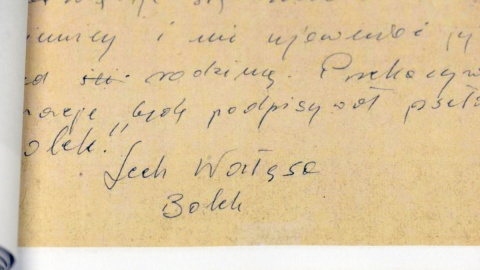 i nie ujawniać
rodziną. Przekazyw
będę podpisywał pseud
olek."
Lech Wałęsa
Bolek